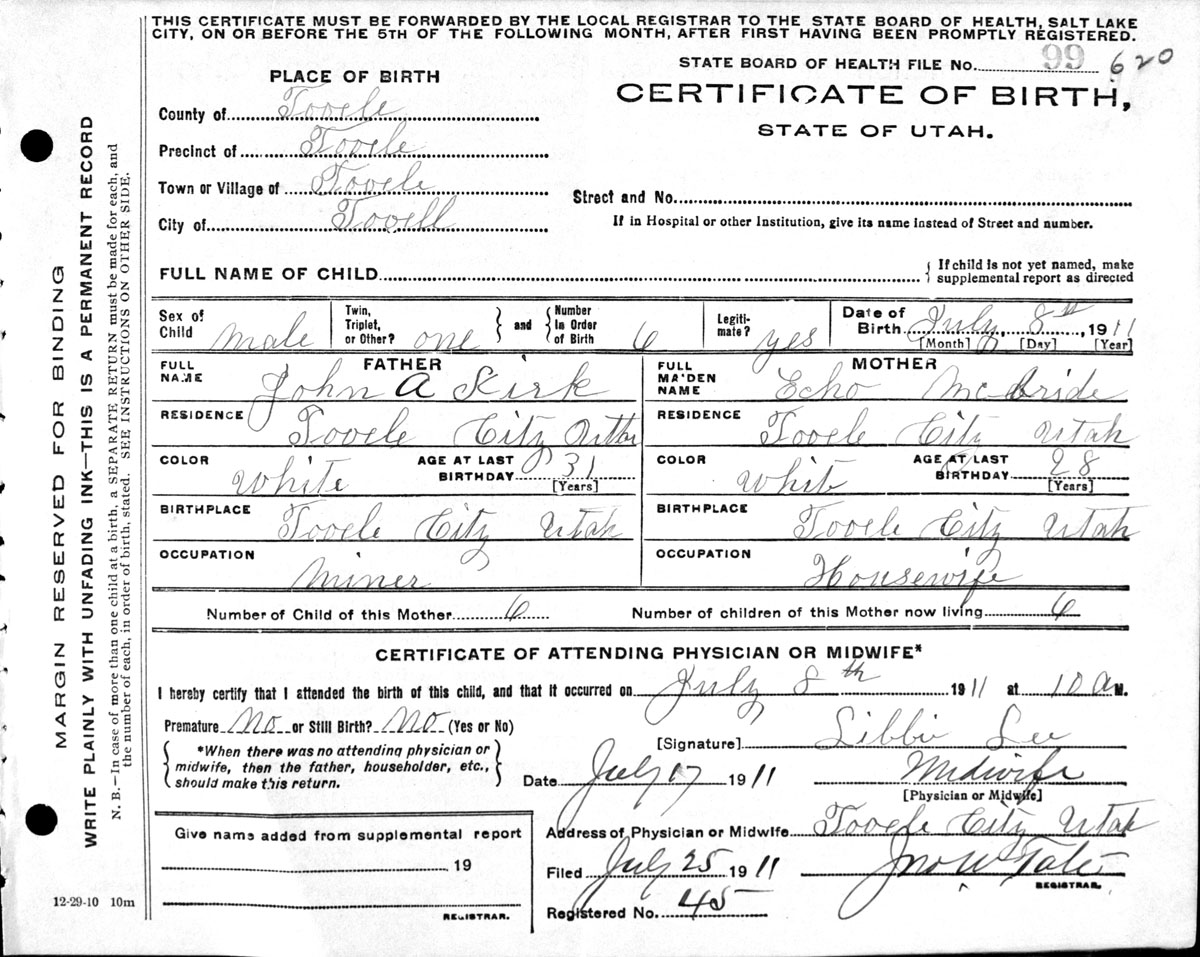 THIS CERTIFICATE MUST BE FORWARDED BY THE LOCAL REGISTRAR TO THE STATE BOARD OF HEALTH, SALT LAKE
CITY, ON OR BEFORE THE 5TH OF THE FOLLOWING MONTH, AFTER FIRST HAVING BEEN PROMPTLY REGISTERED.
STATE BOARD OF HEALTH FILE No. 99 620
PLACE OF BIRTH
CERTIFICATE OF BIRTH,
STATE OF UTAH.
County of Tooele
Precinct of Tooele
Town or Village of Tooele
Street and No.
City of Tooell
If in Hospital or other Institution, give its name Instead of Street and number.
FULL NAME OF CHILD
{ If child is not yet named, make
supplemental report as directed
Sex of Child male
Twin, Triplet, or Other? one } and { Number In Order of Birth 6
Legiti-mate? yes
Date of Birth July 8th, 1911
[Month] [Day] [Year]
FATHER
FULL NAME John A Kirk
MOTHER
FULL MAIDEN NAME Echo McBride
RESIDENCE Tooele City Utah
RESIDENCE Tooele City Utah
COLOR White AGE AT LAST BIRTHDAY 31 [Years]
COLOR Whit AGE AT LAST BIRTHDAY 28 [Years]
BIRTHPLACE Tooele City Utah
BIRTHPLACE Tooele City Utah
OCCUPATION Miner
OCCUPATION Housewife
Number of Child of this Mother 6 Number of children of this Mother now living 6
CERTIFICATE OF ATTENDING PHYSICIAN OR MIDWIFE*
I hereby certify that I attended the birth of this child, and that it occurred on July 8th 1911 at 10 a M.
Premature No or Still Birth? No (Yes or No)
{ *When there was no attending physician or
midwife, then the father, householder, etc.,
should make this return. }
[Signature] Libbie Lee
Date July 17 1911 Midwife
[Physician or Midwife]
Address of Physician or Midwife Tooele City Utah
Filed July 25 1911 Jno W Tate
REGISTRAR.
Registered No. 45
Give name added from supplemental report
19
REGISTRAR.
12-29-10 10m
MARGIN RESERVED FOR BINDING
WRITE PLAINLY WITH UNFADING INK—THIS IS A PERMANENT RECORD
N. B.—In case of more than one child at a birth, a SEPARATE RETURN must be made for each, and
the number of each, in order of birth, stated. SEE INSTRUCTIONS ON OTHER SIDE.